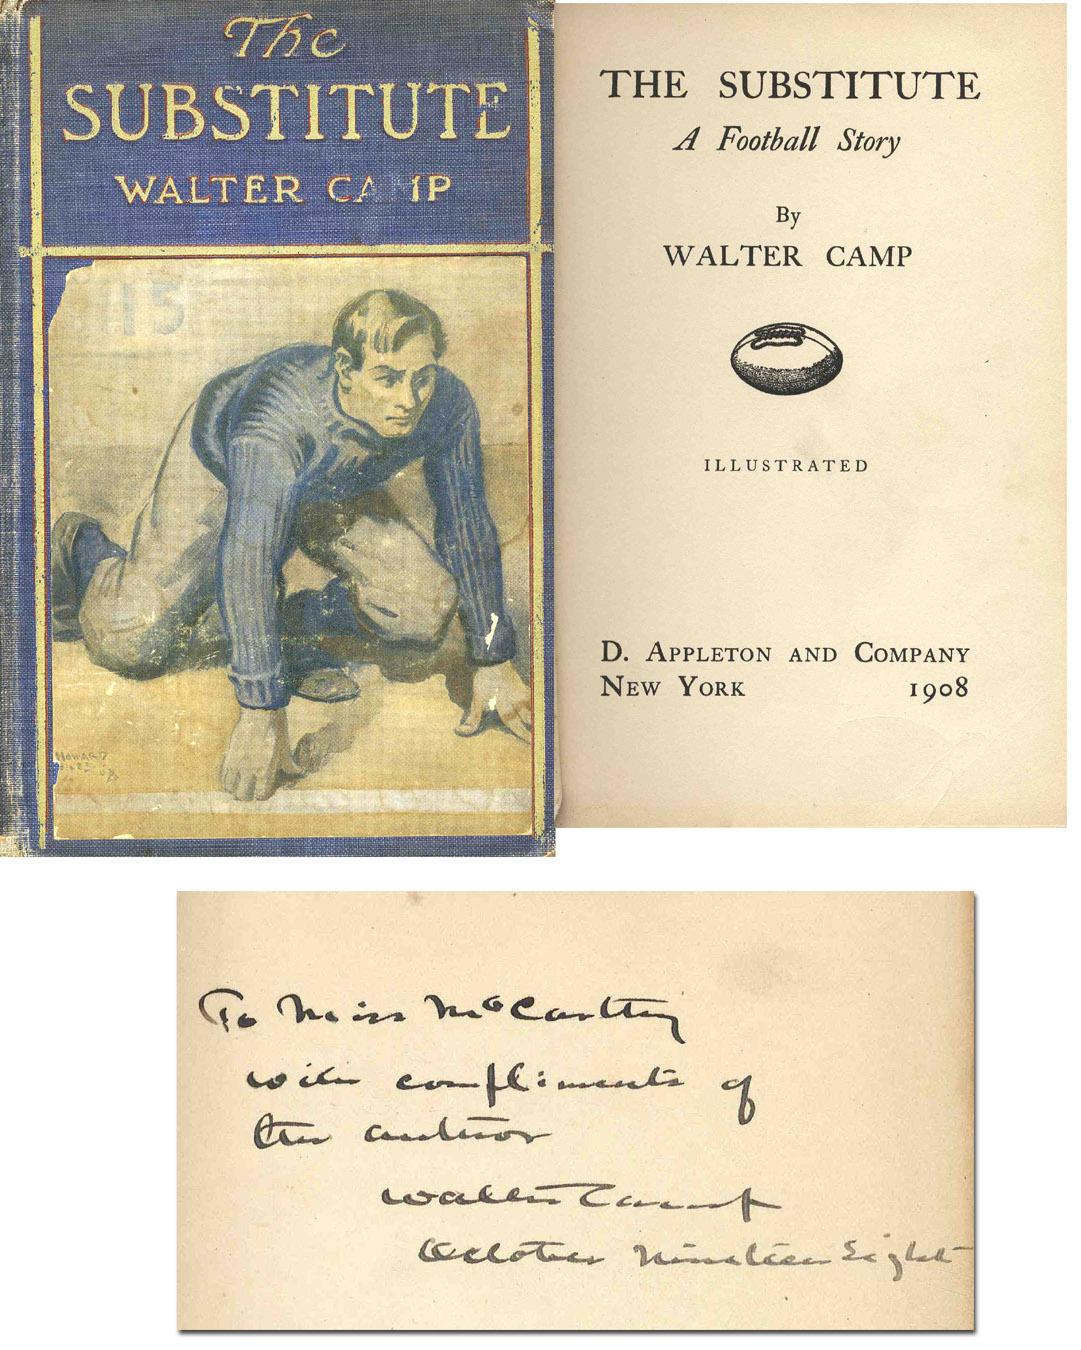 The
SUBSTITUTE
WALTER CAMP
115
HOWARD
THE SUBSTITUTE
A Football Story
By
WALTER CAMP
ILLUSTRATED
D. APPLETON AND COMPANY
NEW YORK 1908
To Miss McCarthy
with compliments of
the author
Walter Camp
October Nineteen Eight